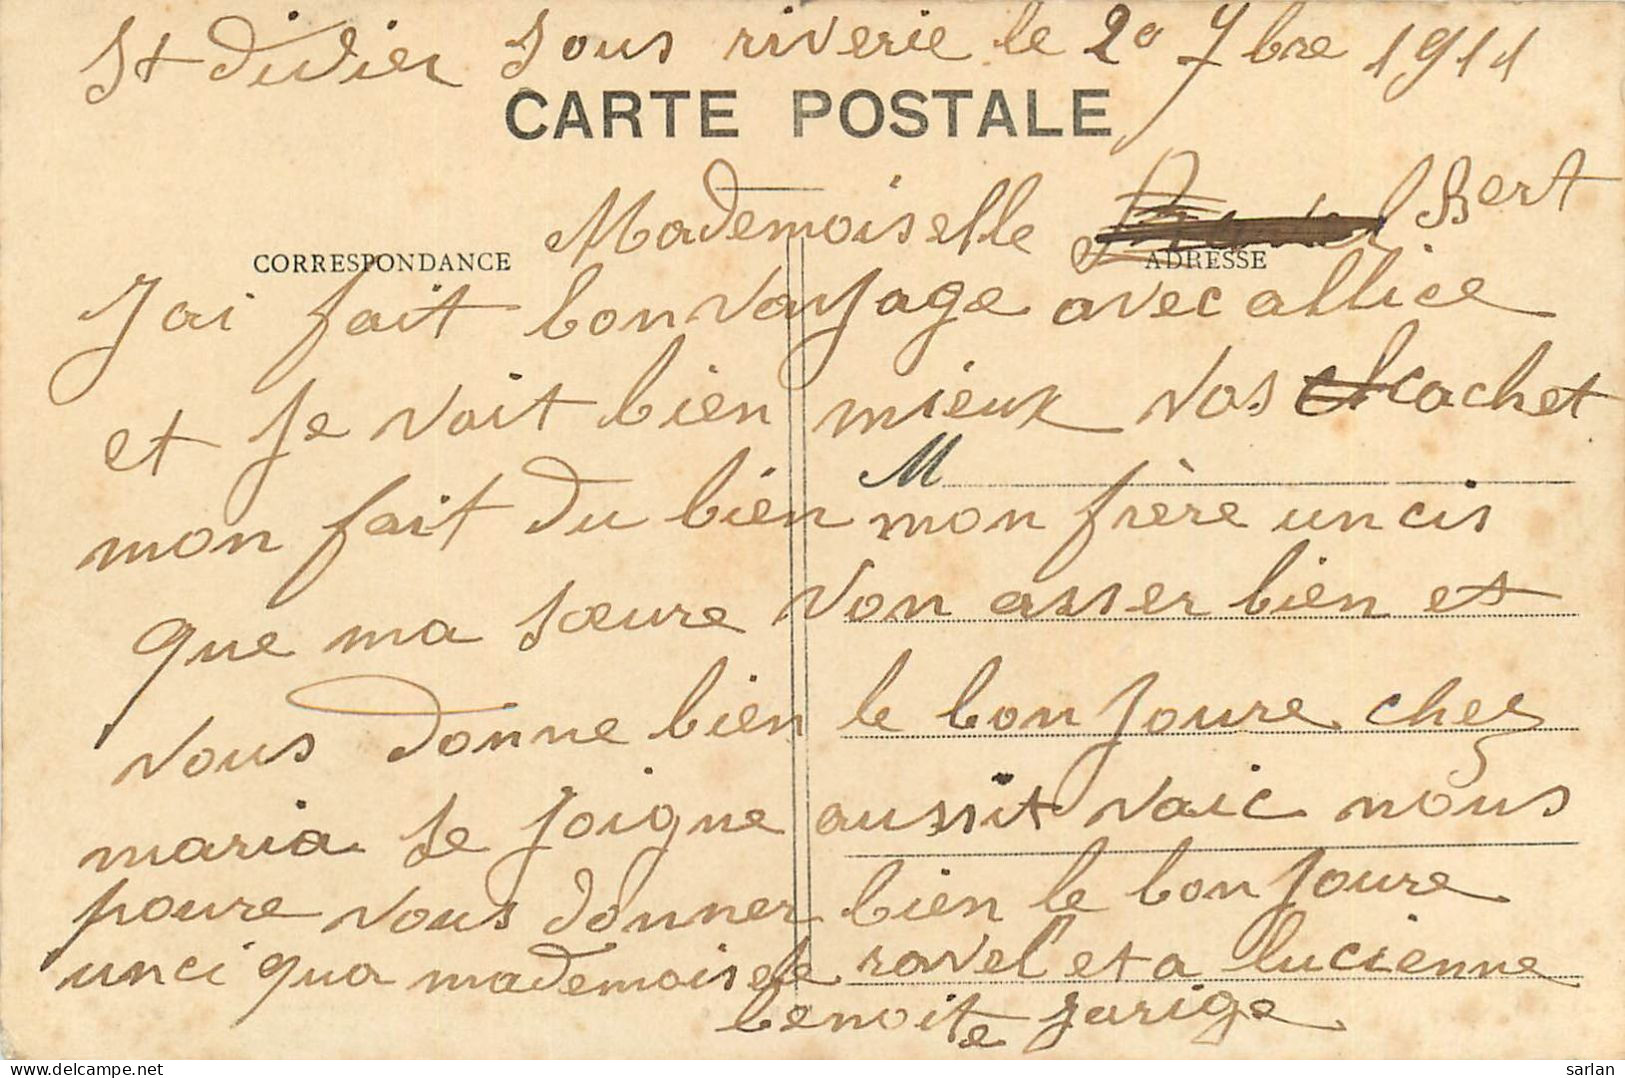 St didier Sous riverie le 20 7bre 1911
CARTE POSTALE
Mademoiselle Bert
CORRESPONDANCE
ADRESSE
Jai fait bon vayage avec allice
et Je vait bien mieux vos cachet
M
mon fait du bien mon frère uncis
que ma sœure von asser bien et
vous donne bien le bon Joure chez
maria se Joigne aussit vaic nous
poure vous donner bien le bon Joure
unci qua mademoiselle ravel et a lucienne
benoite Jarige
sarlan